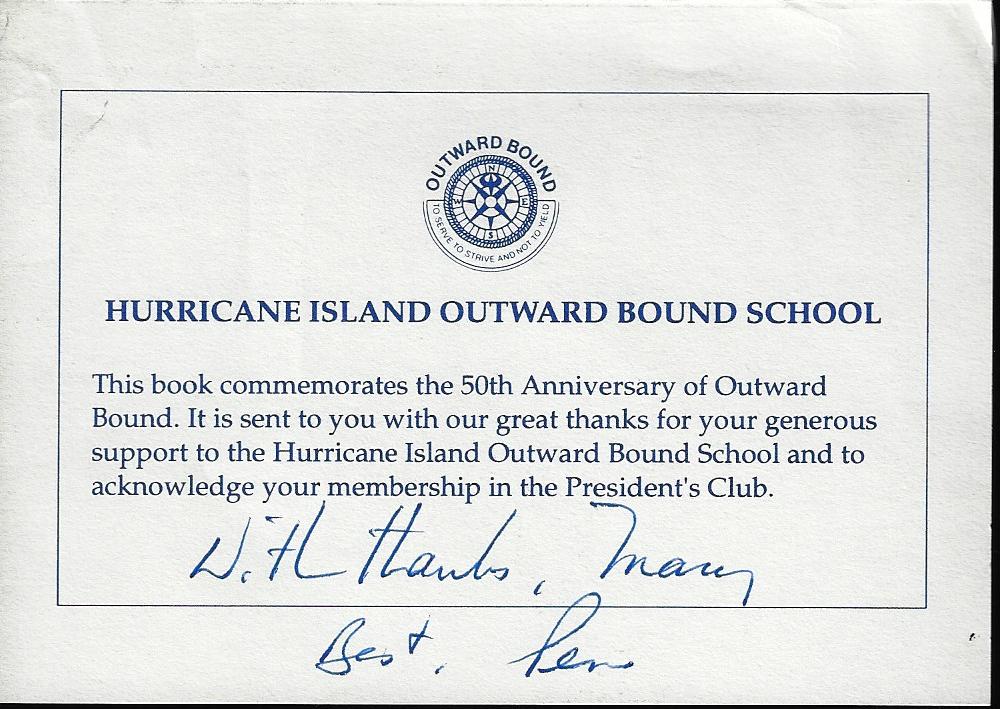 OUTWARD BOUND
N
W E
S
TO SERVE TO STRIVE AND NOT TO YIELD
HURRICANE ISLAND OUTWARD BOUND SCHOOL
This book commemorates the 50th Anniversary of Outward
Bound. It is sent to you with our great thanks for your generous
support to the Hurricane Island Outward Bound School and to
acknowledge your membership in the President's Club.
With thanks, Mary
Best, Pen